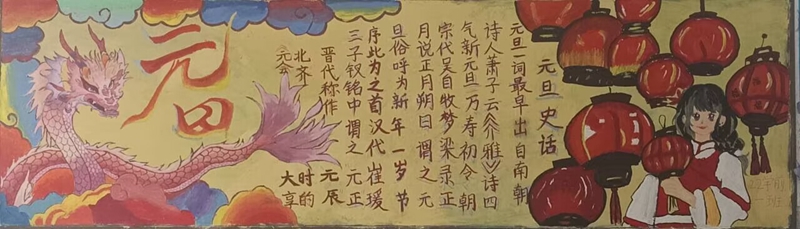 元旦史话
元旦一词最早出自南朝
诗人萧子云《介雅》诗四
气新元旦万寿初令朝
宗代吴自牧梦梁录正
月说正月朔日谓之元
旦俗呼为新年一岁节
序此为之首汉代崔瑗
三子钗铭中谓之元正
晋代称作元辰
北齐时的
元会大享
元旦